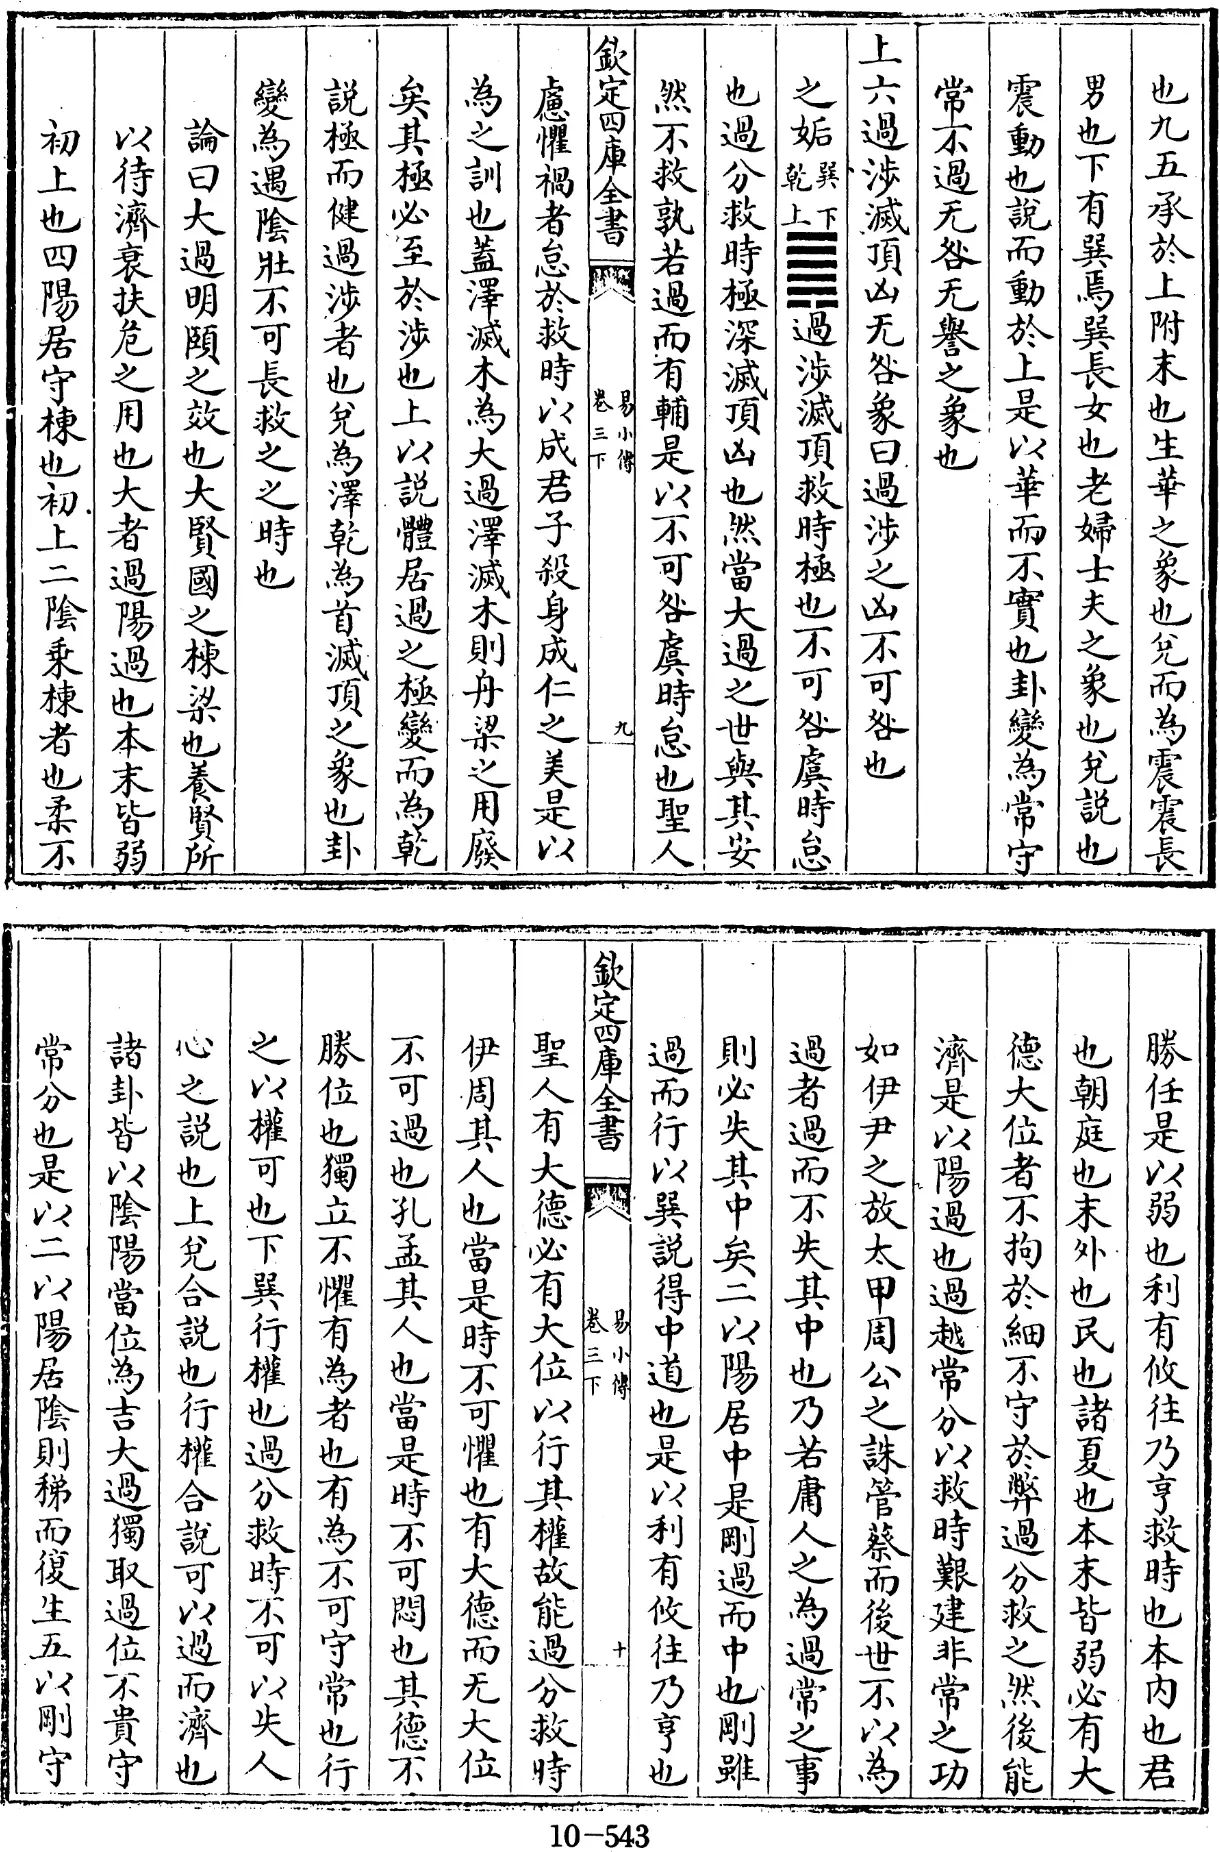 也九五承於上附末也生華之象也兌而為震震長
男也下有巽焉巽長女也老婦士夫之象也兌説也
震動也説而動於上是以華而不實也卦變為常守
常不過无咎无譽之象也
上六過涉滅頂凶无咎象曰過涉之凶不可咎也
之姤巽下乾上䷫過涉滅頂救時極也不可咎虞時怠
也過分救時極深滅頂凶也然當大過之世與其安
然不救孰若過而有輔是以不可咎虞時怠也聖人
欽定四庫全書
易小傳
卷三下
九
慮懼禍者怠於救時以成君子殺身成仁之美是以
為之訓也蓋澤滅木為大過澤滅木則舟梁之用廢
矣其極必至於涉也上以説體居過之極變而為乾
説極而健過涉者也兌為澤乾為首滅頂之象也卦
變為遇陰壯不可長救之之時也
論曰大過明頤之效也大賢國之棟梁也養賢所
以待濟衰扶危之用也大者過陽過也本末皆弱
初上也四陽居守棟也初上二陰乗棟者也柔不
勝任是以弱也利有攸往乃亨救時也本内也君
也朝庭也末外也民也諸夏也本末皆弱必有大
德大位者不拘於細不守於弊過分救之然後能
濟是以陽過也過越常分以救時艱建非常之功
如伊尹之放太甲周公之誅管蔡而後世不以為
過者過而不失其中也乃若庸人之為過常之事
則必失其中矣二以陽居中是剛過而中也剛雖
過而行以巽説得中道也是以利有攸往乃亨也
欽定四庫全書
易小傳
卷三下
十
聖人有大德必有大位以行其權故能過分救時
伊周其人也當是時不可懼也有大德而无大位
不可過也孔孟其人也當是時不可悶也其德不
勝位也獨立不懼有為者也有為不可守常也行
之以權可也下巽行權也過分救時不可以失人
心之説也上兌合説也行權合説可以過而濟也
諸卦皆以陰陽當位為吉大過獨取過位不貴守
常分也是以二以陽居陰則稊而復生五以剛守
10-543